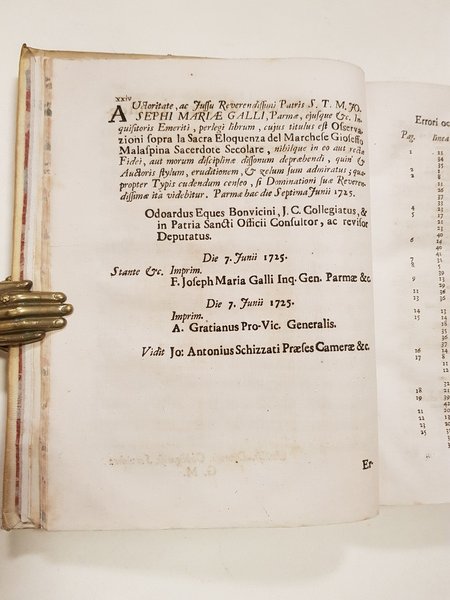 xxiv
AUctoritate, ac Jussu Reverendissimi Patris S. T. M. JO-
SEPHI MARIÆ GALLI, Parmæ, ejusque &c. In-
quisitoris Emeriti, perlegi librum, cujus titulus est Osserva-
zioni sopra la Sacra Eloquenza del Marchese Gioseffo
Malaspina Sacerdote Secolare, nihilque in eo aut rectæ
Fidei, aut morum disciplinæ dissonum depræhendi, quin &
Auctoris stylum, eruditionem, & zelum sum admiratus, qua-
propter Typis cudendum censeo, si Dominationi suæ Reveren-
dissimæ ita videbitur. Parmæ hac die Septima Junii 1725.
Odoardus Eques Bonvicini, J. C. Collegiatus, &
in Patria Sancti Officii Consultor, ac revisor
Deputatus.
Die 7. Junii 1725.
Stante &c. Imprim.
F. Joseph Maria Galli Inq. Gen. Parmæ &c.
Die 7. Junii 1725.
Imprim.
A. Gratianus Pro-Vic. Generalis.
Vidit Jo: Antonius Schizzati Præses Cameræ &c.
Er-
Errori oc
Pag.